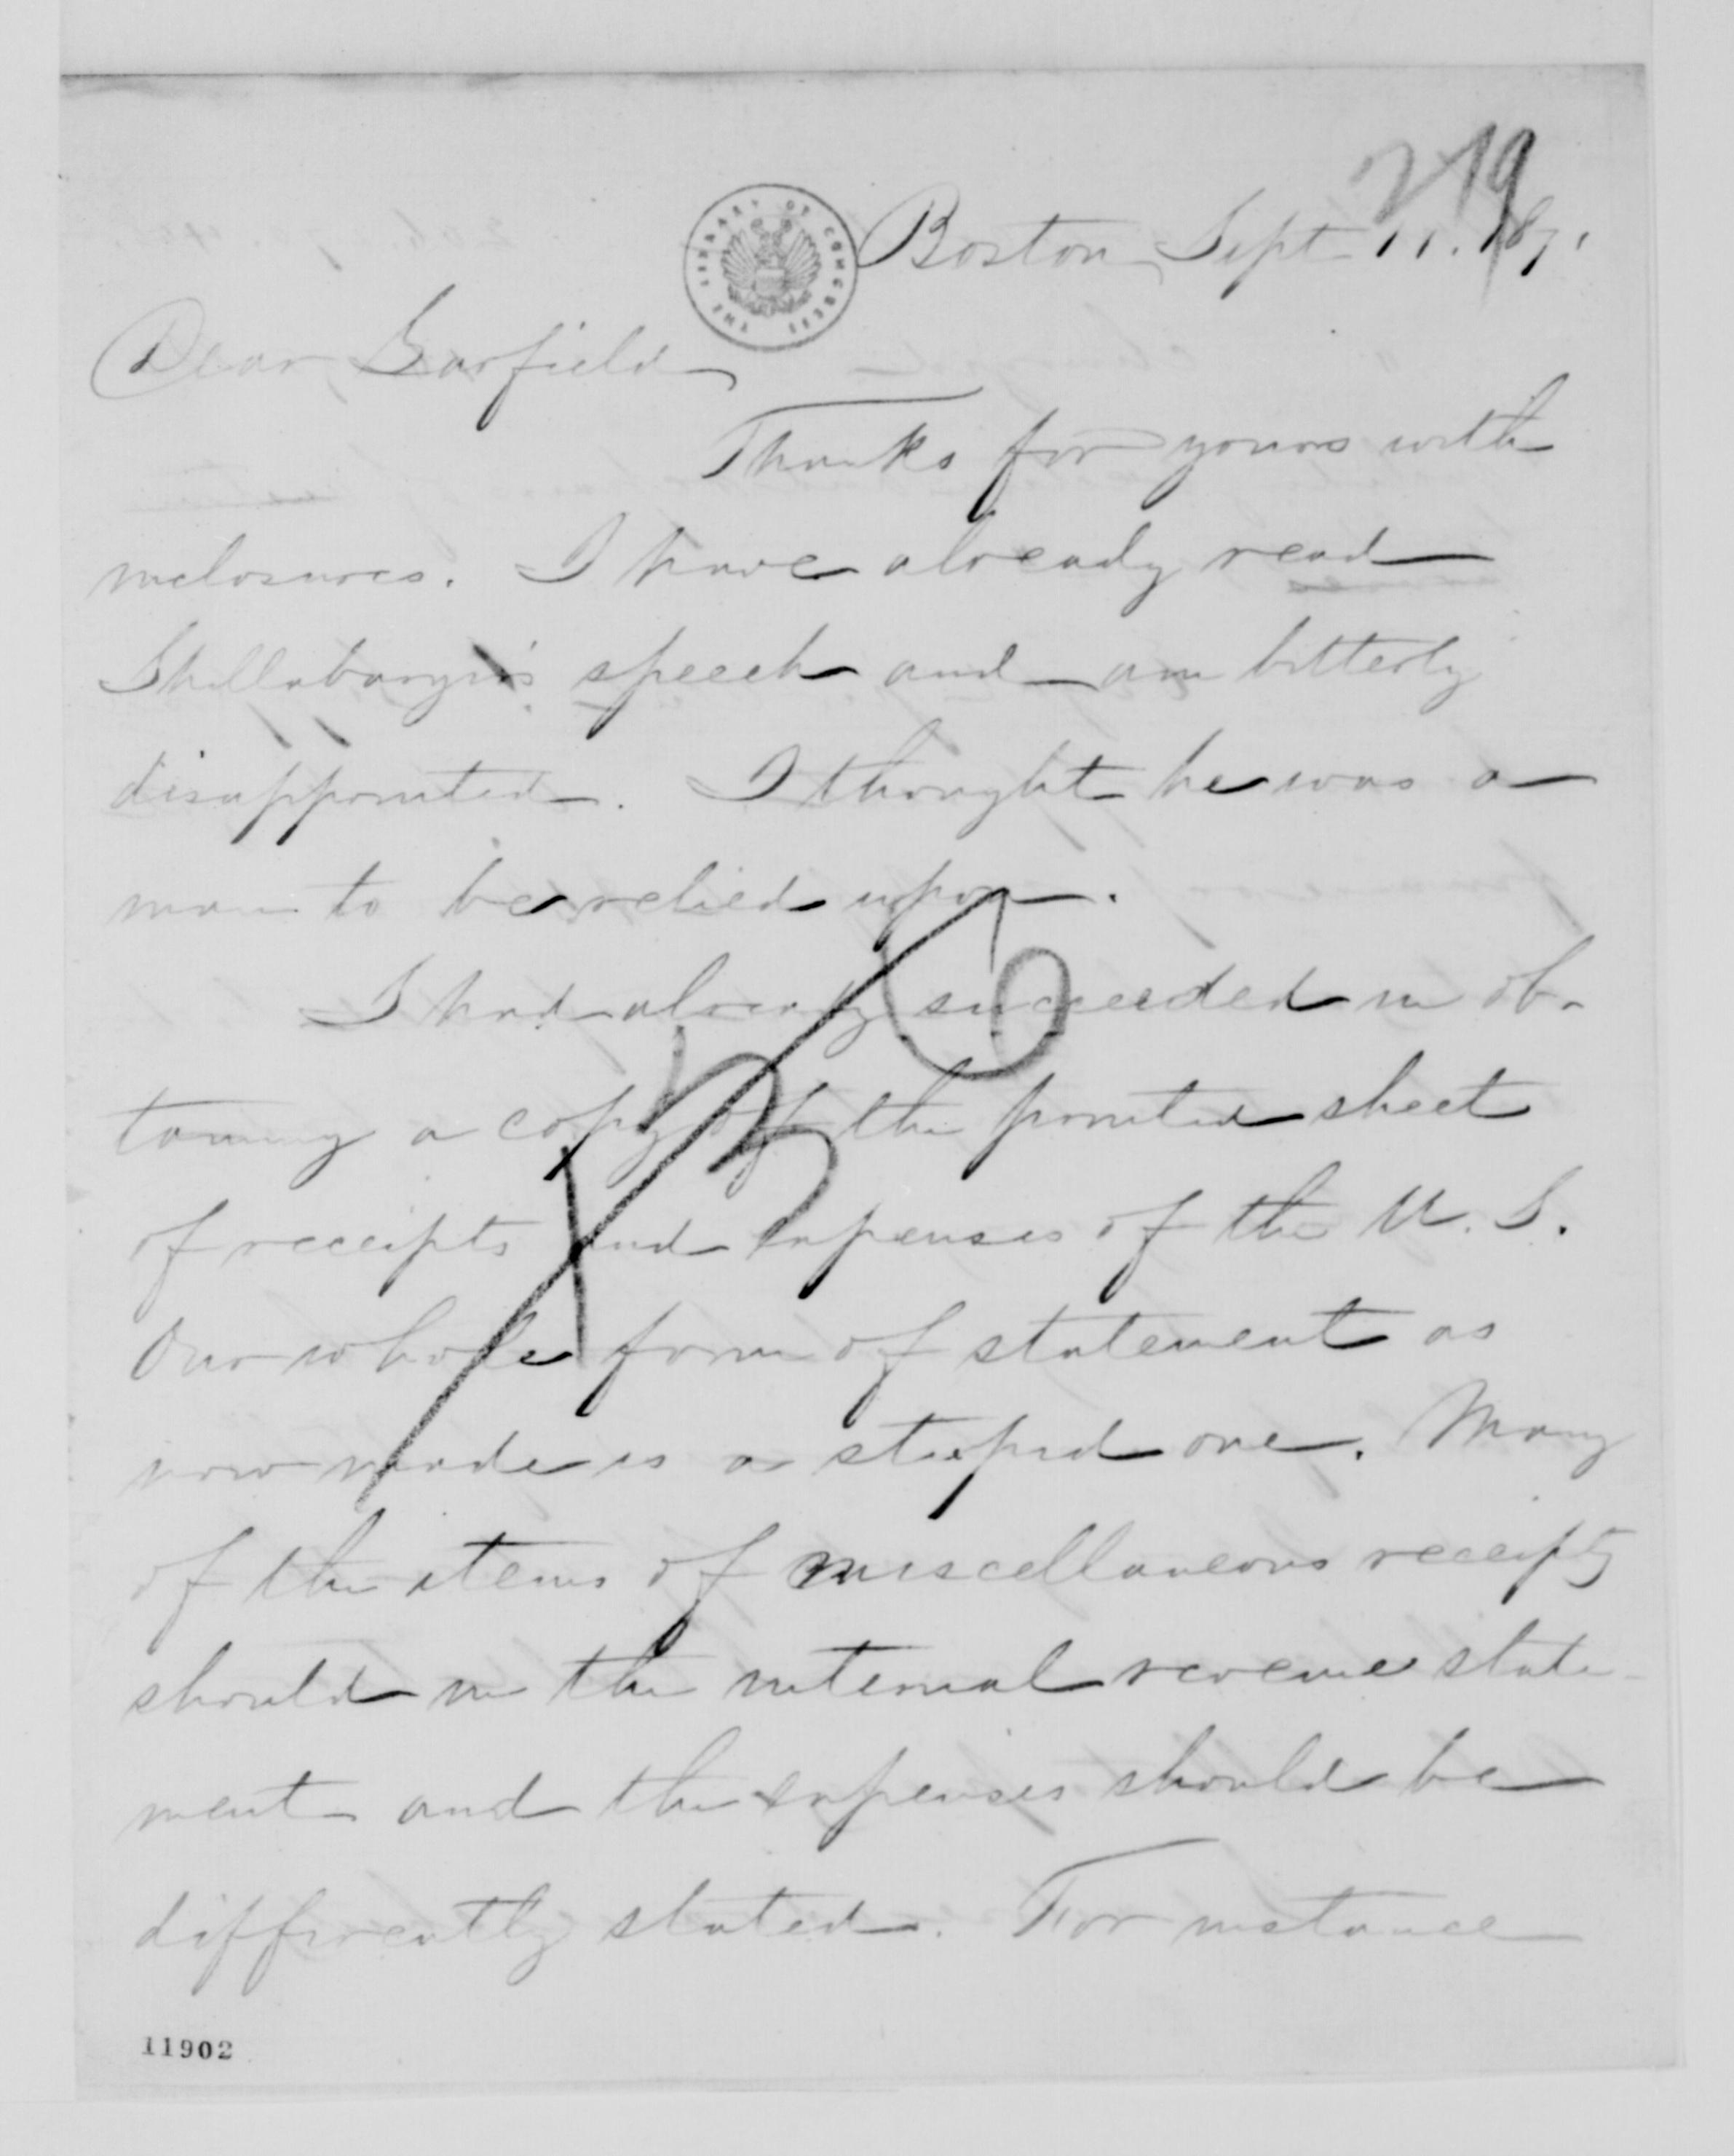 219
Boston Sept 11. 1871
THE LIBRARY OF CONGRESS
Dear Garfield
Thanks for yours with
inclosures. I have already read
Shellabarger's speech and am bitterly
disappointed. I thought he was a
man to be relied upon.
I had already succeeded in ob-
taining a copy of the printed sheet
of receipts and expenses of the U. S.
Our whole form of statement as
now made is a stupid one. Many
of the items of miscellaneous receipts
should in the internal revenue state-
ment and the expenses should be
differently stated. For instance
11902